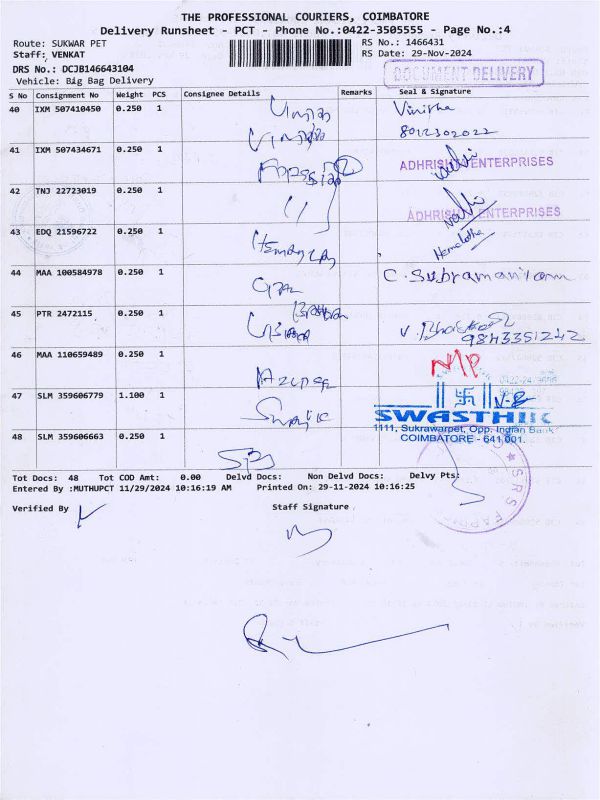 THE PROFESSIONAL COURIERS, COIMBATORE
Delivery Runsheet - PCT - Phone No.:0422-3505555 - Page No.:4
Route: SUKWAR PET
RS No.: 1466431
Staff: VENKAT
RS Date: 29-Nov-2024
DRS No.: DCJB146643104
DOCUMENT DELIVERY
Vehicle: Big Bag Delivery
S No Consignment No Weight PCS Consignee Details Remarks Seal & Signature
40 IXM 507410450 0.250 1 Vinitha
8012302022
41 IXM 507434671 0.250 1 ADHRISHT ENTERPRISES
42 TNJ 22723019 0.250 1 ADHRISHT ENTERPRISES
43 EDQ 21596722 0.250 1 Hemalatha
44 MAA 100584978 0.250 1 C. Subramaniam
45 PTR 2472115 0.250 1 V. Bhaskar
9843351242
46 MAA 110659489 0.250 1 N/P
47 SLM 359606779 1.100 1
SWASTHIK
1111, Sukrawarpet, Opp. Indian Bank
COIMBATORE - 641 001.
48 SLM 359606663 0.250 1 SRS
Tot Docs: 48 Tot COD Amt: 0.00 Delvd Docs: Non Delvd Docs: Delvy Pts:
Entered By :MUTHUPCT 11/29/2024 10:16:19 AM Printed On: 29-11-2024 10:16:25
Verified By Staff Signature